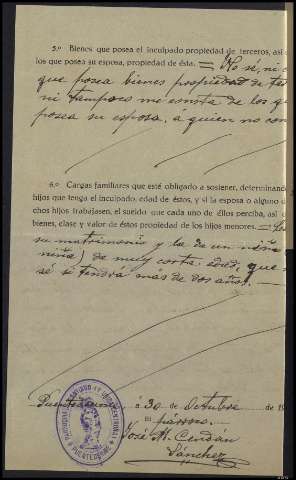 5.º Bienes que posea el inculpado propiedad de terceros, así
los que posea su esposa, propiedad de ésta. = No sé, ni
que posea bienes propiedad de
ni tampoco me consta de los
posea su esposa, a quien no
6.º Cargas familiares que esté obligado a sostener, determinando
hijos que tenga el inculpado, edad de éstos, y si la esposa o alguno
chos hijos trabajasen, el sueldo que cada uno de éllos perciba, así
bienes, clase y valor de éstos propiedad de los hijos menores.
su matrimonio y la de un niño
niña) de muy corta edad, que
sé si tendrá más de dos años.
á 30 de Octubre de
párroco.
José M. Cendán
Sánchez
PUENTEDEUME